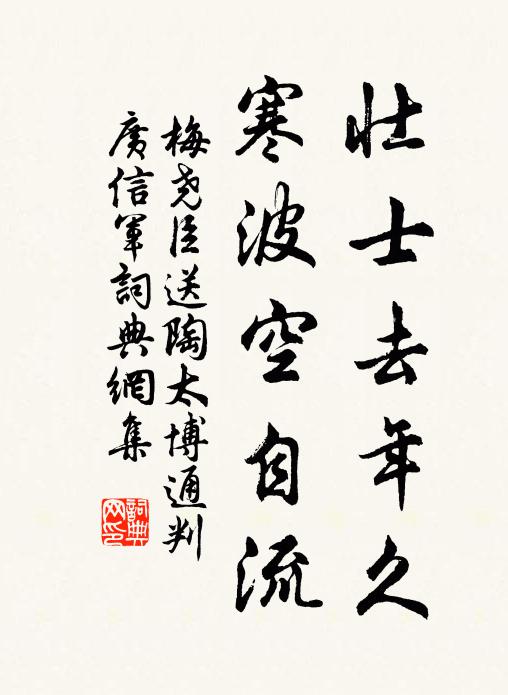 壮士去年久
寒波空自流
梅尧臣送陶太博通判
廣信軍詞典網集
詞典网印